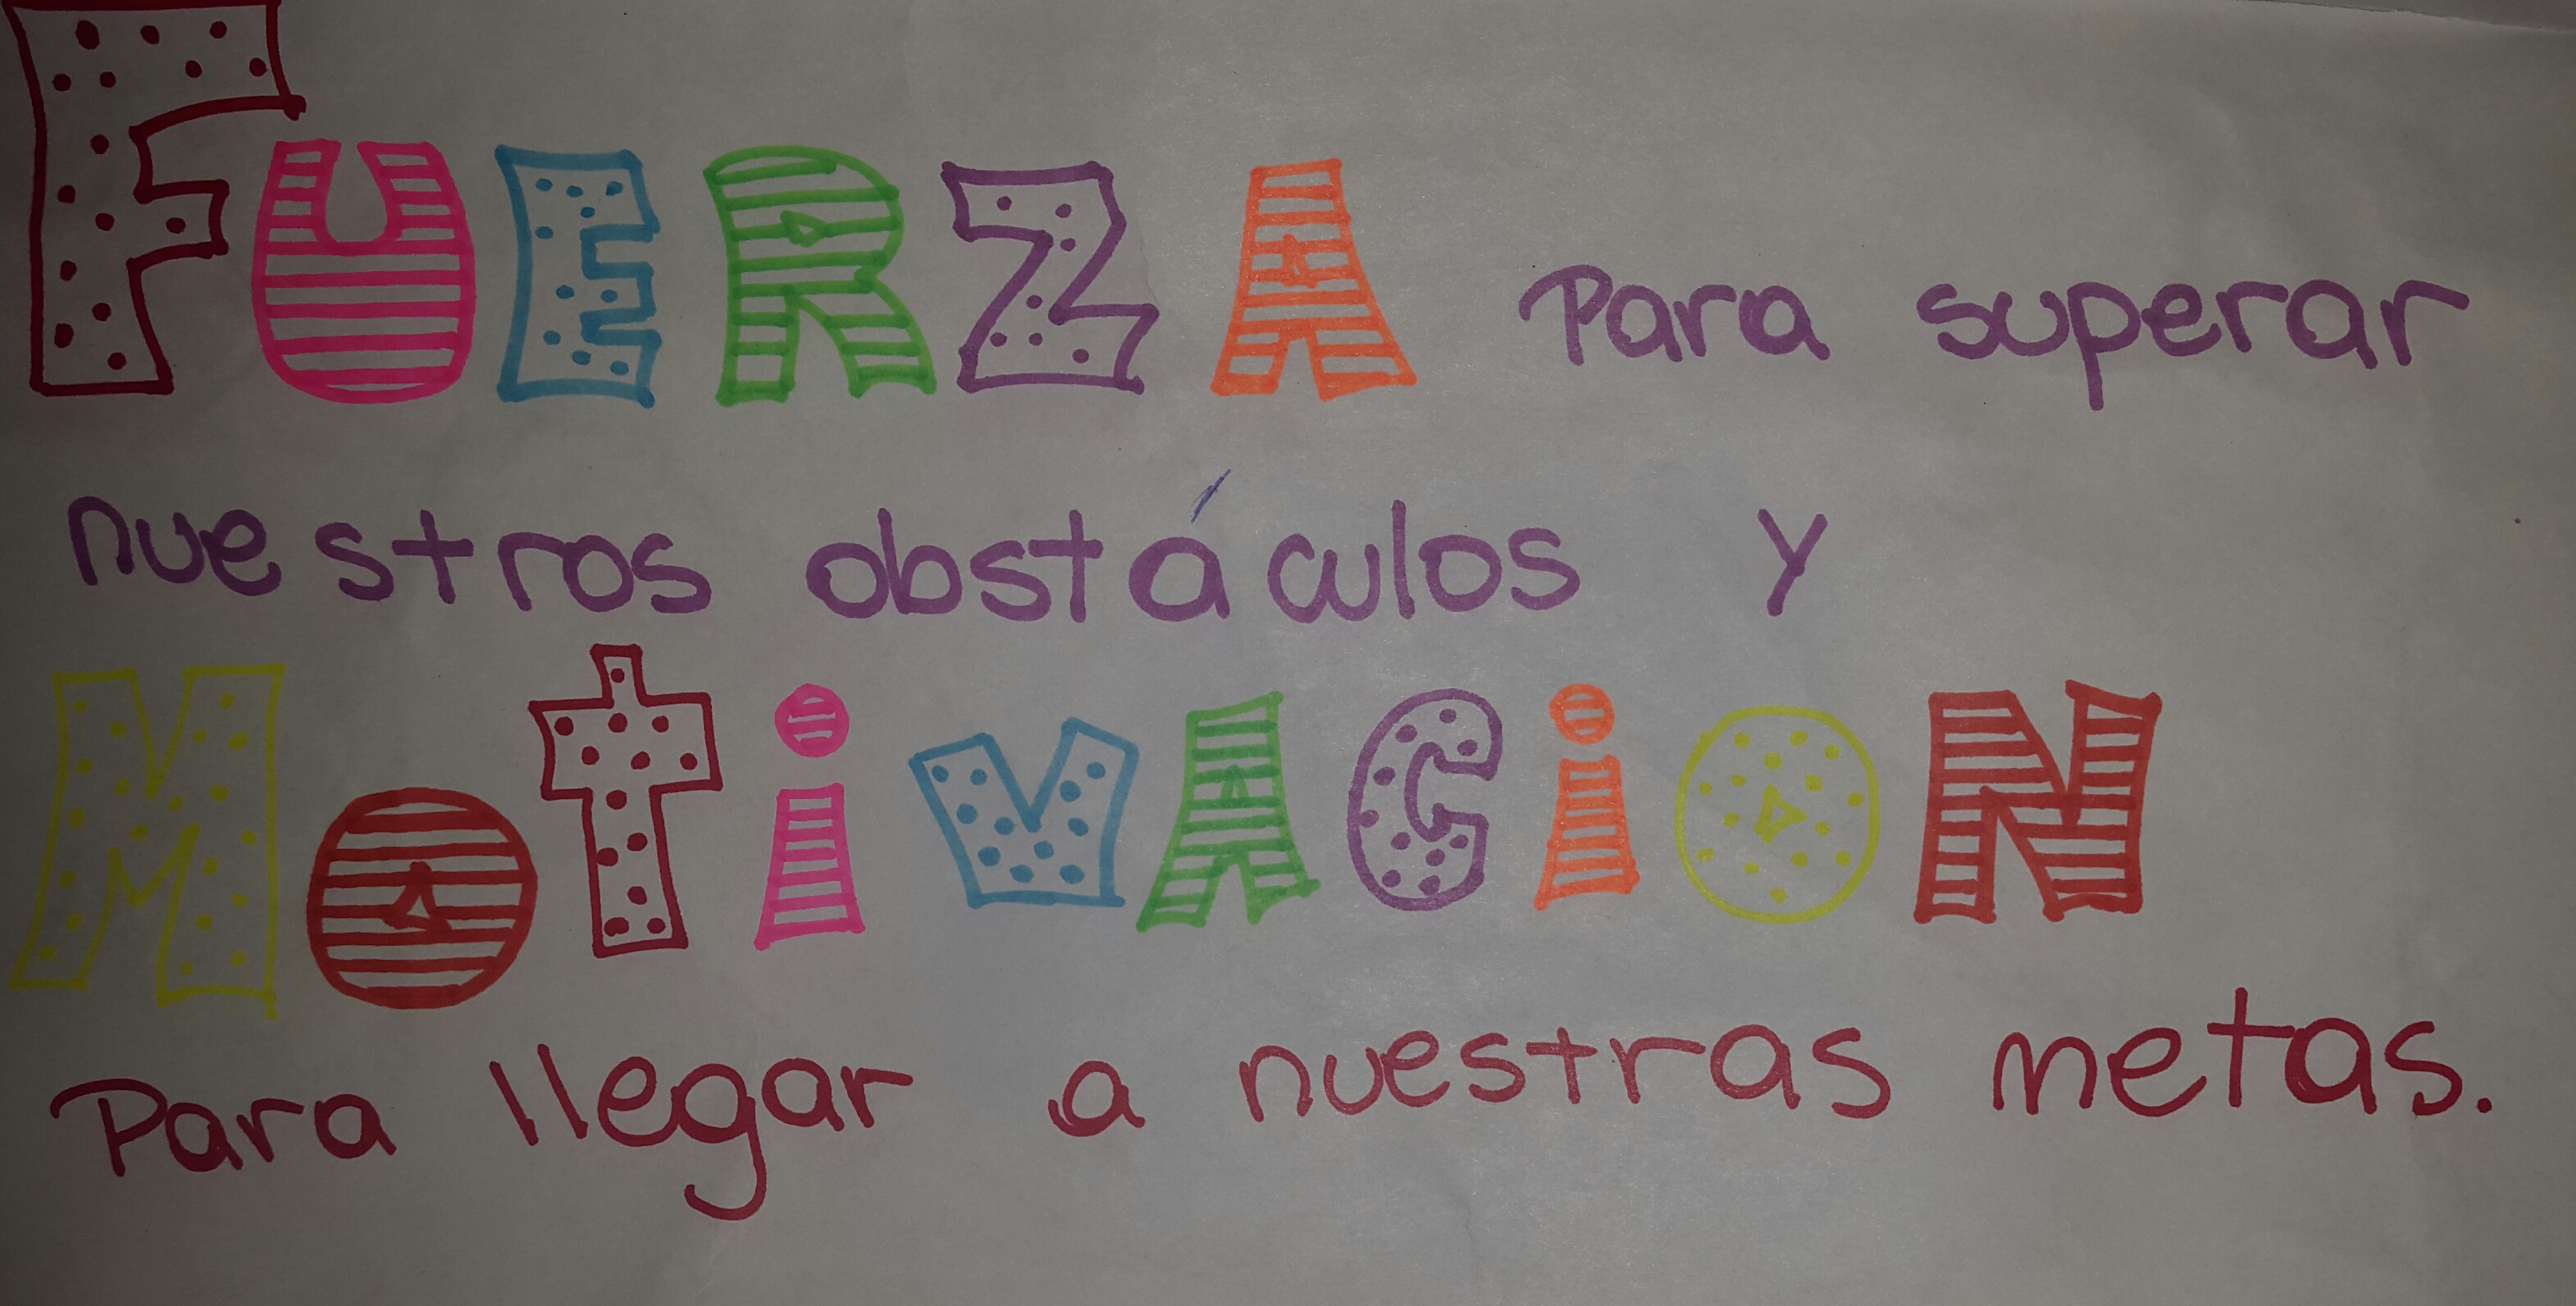 FUERZA Para superar
nuestros obstáculos y
MOtiVACiON
Para llegar a nuestras metas.